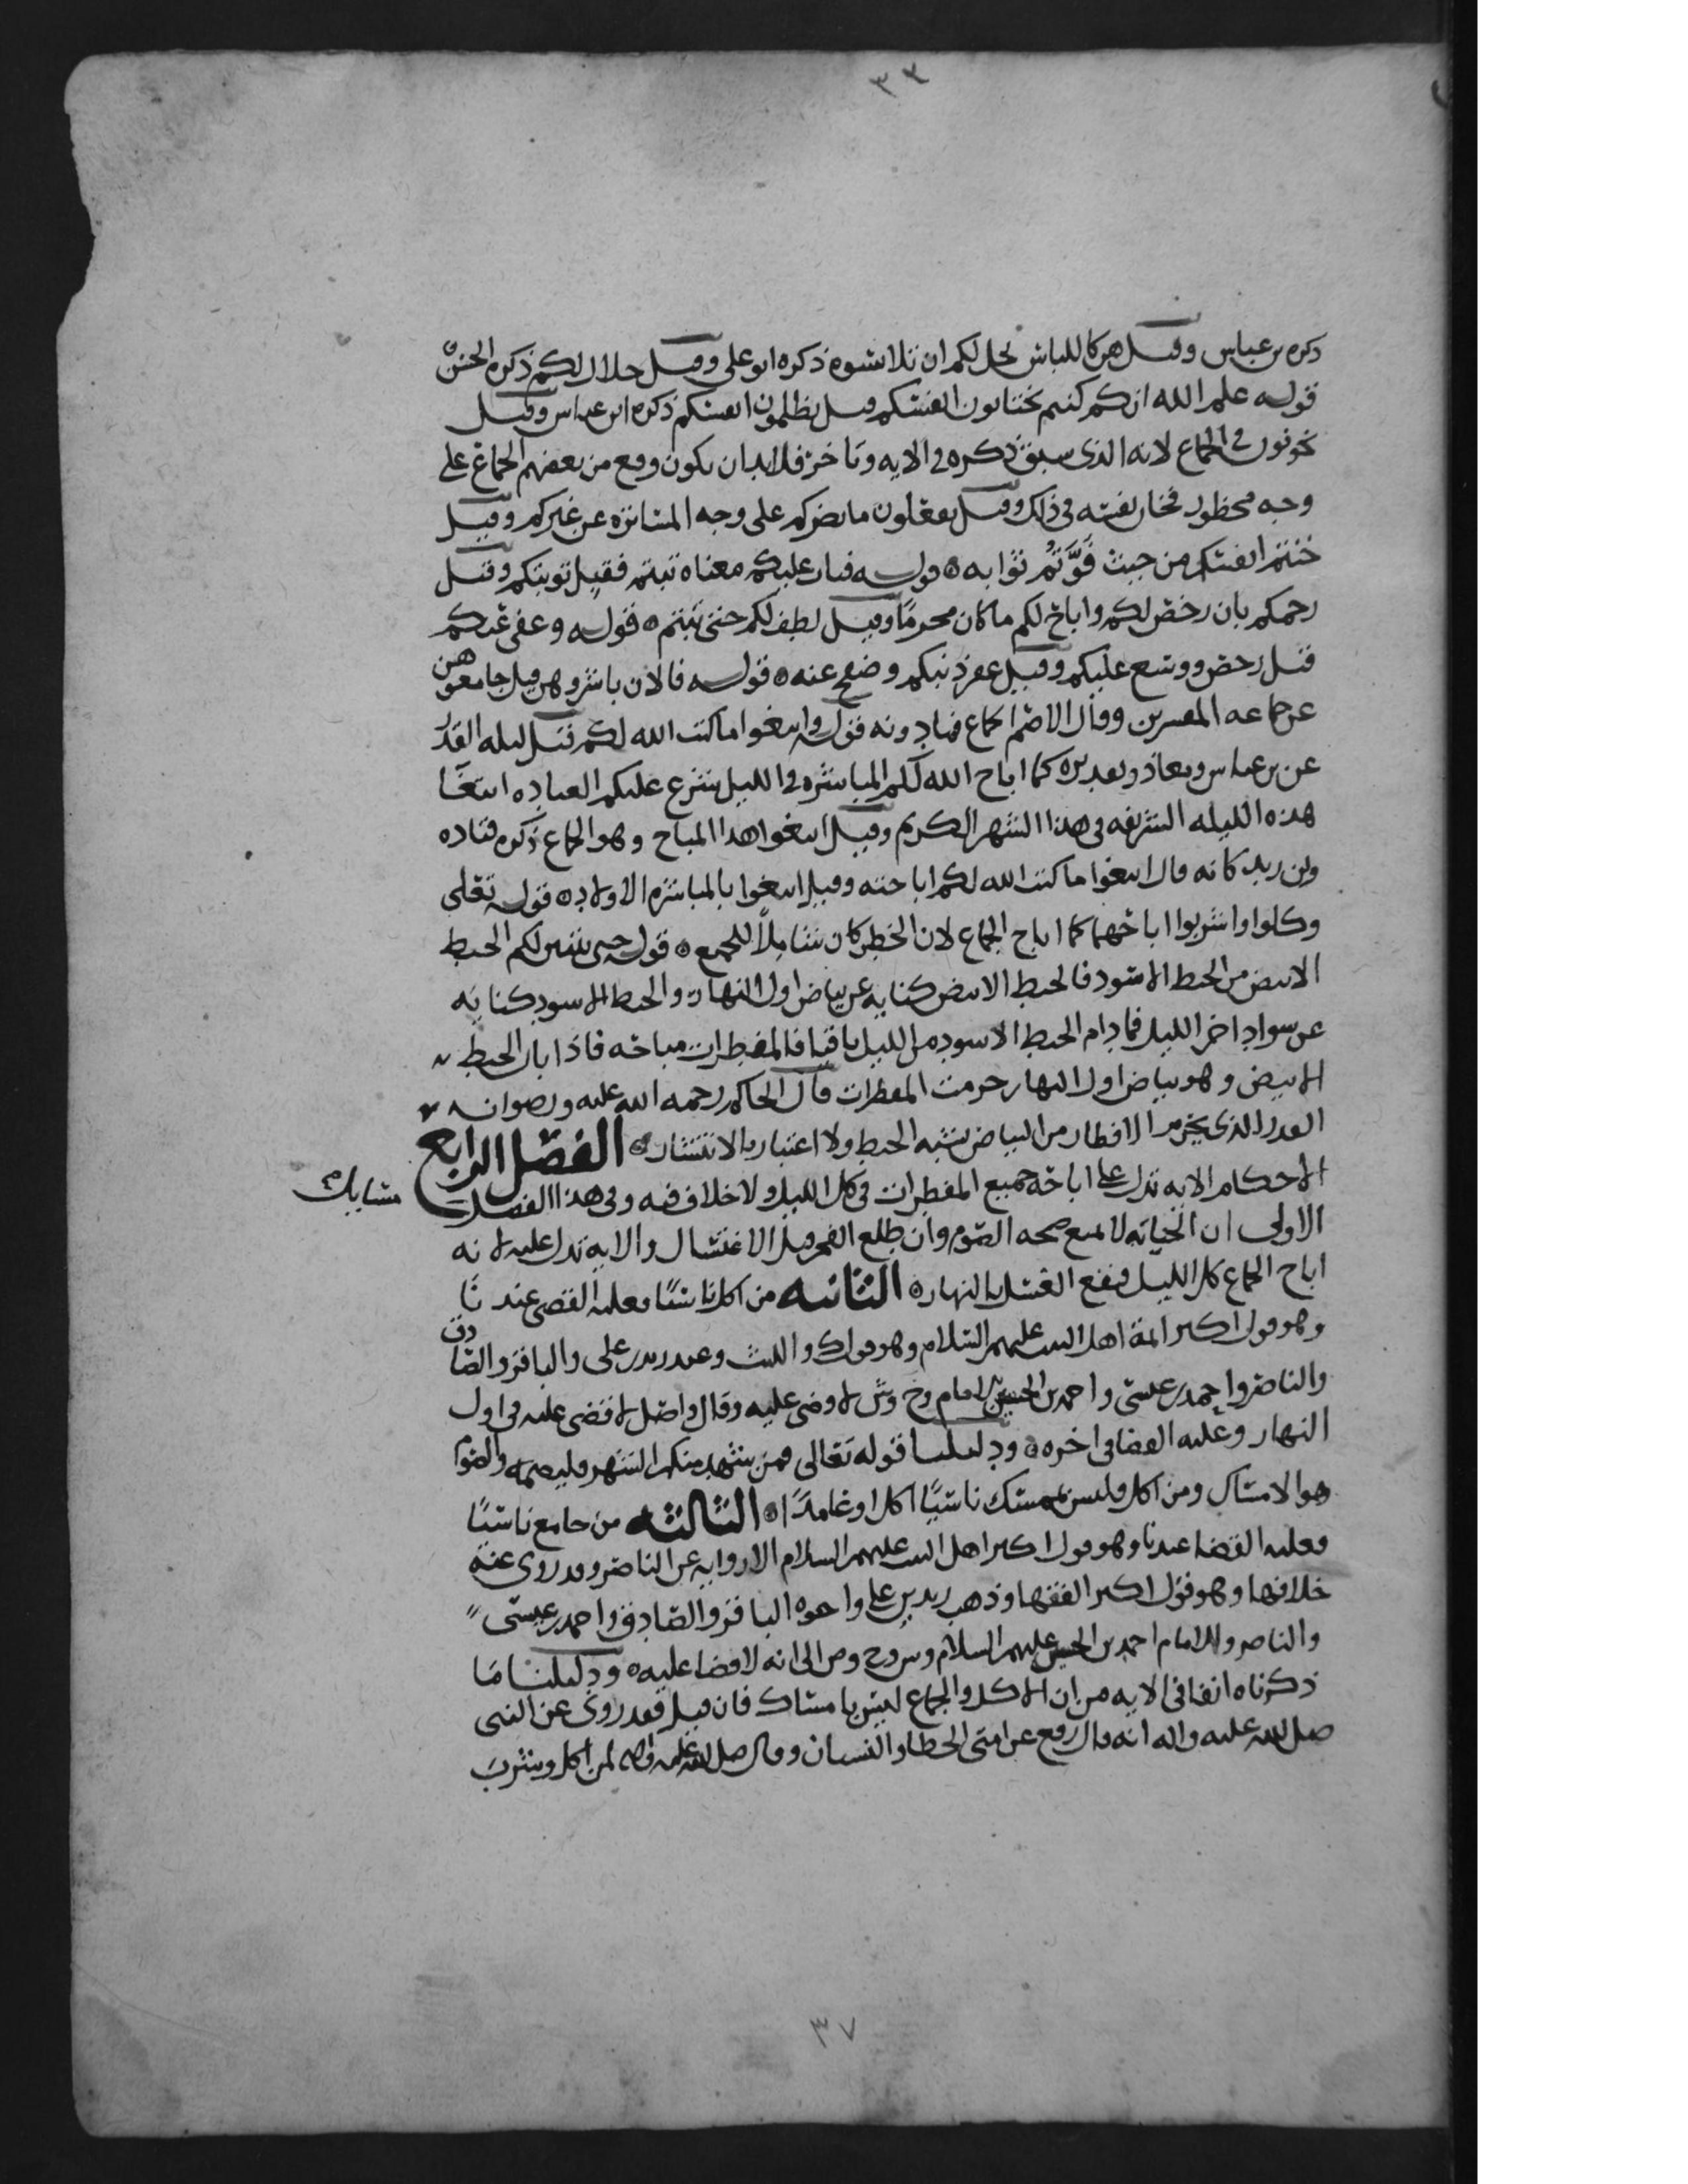 ٣٣
ذكره بن عباس وقيل هن كاللباس يحل لكم ان تلابسوه ذكره ابو على وقيل حلال لكم ذكره الحسن
قوله علم الله انكم كنتم تختانون انفسكم قيل تظلمون انفسكم ذكره ابن عباس وقيل
تخونون فى الجماع لانه الذى سبق ذكره فى الايه وتاخر فلابد ان يكون وقع من بعضهم الجماع على
وجه محظور فخان نفسه فى ذلك وقيل تفعلون ما يضركم على وجه المساتره عن غيركم وقيل
خنتم انفسكم من حيث فَوَّتُم ثوابه ه قوله فتاب عليكم معناه تبتم فقبل توبتكم وقيل
رحمكم بان رخص لكم واباح لكم ما كان محرمًا وقيل لطف لكم حتى تبتم ه قوله وعفى عنكم
قيل رخص ووسع عليكم وقيل غفر ذنبكم وصفح عنه ه قوله فالان باشروهن قيل جامعوهن
عن جماعه المفسرين وقال الاصم الجماع فما دونه قوله وابتغوا ما كتب الله لكم قيل ليله القدر
عن بن عباس ومعاذ وتقديره كما اباح الله لكم المباشره فى الليل شرع عليكم العباده ابتغا
هذه الليله الشريفه فى هذا الشهر الكريم وقيل ابتغوا هذا المباح وهو الجماع ذكره قتاده
وبن زيد كانه قال ابتغوا ما كتب الله لكم اباحته وقيل ابتغوا بالمباشره الاولاد ه قوله تعلى
وكلوا واشربوا اباحهما كما اباح الجماع لان الخطر كان شاملًا للجميع ه قوله حتى يتبين لكم الخيط
الابيض من الخيط الاسود فالخيط الابيض كنايه عن بياض اول النهار والخيط الاسود كنايه
عن سواد اخر الليل فمادام الخيط الاسود من الليل باقيا فالمفطرات مباحه فاذا بان الخيط
الابيض وهو بياض اول النهار حرمت المفطرات قال الحاكم رحمه الله عليه ورضوانه
القدر الذى يحرم الافطار من البياض يشبه الخيط ولا اعتبار بالانتشار ه الفصل الرابع
الاحكام الايه تدل على اباحه جميع المفطرات فى كل الليل ولا خلاف فيه وفى هذا الفصل مسايل
الاولى ان الجنابه لا تمنع صحه الصوم وان طلع الفجر قبل الاغتسال والايه تدل عليه لانه
اباح الجماع كل الليل فيقع الغسل بالنهار ه الثانيه من اكل ناسيًا فعليه القضى عندنا
وهو قول اكثر ائمة اهل البيت عليهم السلام وهو قول ك والليث وعند زيد بن على والباقر والصادق
والناصر واحمد بن عيسى واحمد بن الحسين الامام وح وش لا قضى عليه وقال واصل لا قضى عليه فى اول
النهار وعليه القضا فى اخره ه ودليلنا قوله تعالى فمن شهد منكم الشهر فليصمه والصوم
هو الامساك ومن اكل فليس بممسك ناسيًا اكل او عامدًا ه الثالثه من جامع ناسيًا
فعليه القضا عندنا وهو قول اكثر اهل البيت عليهم السلام الا روايه عن الناصر وقد روى عنه
خلافها وهو قول اكثر الفقها وذهب زيد بن على واخوه الباقر والصادق واحمد بن عيسى
والناصر والامام احمد بن الحسين عليهم السلام وش وح وص الى انه لا قضا عليه ه ودليلنا ما
ذكرناه انفا فى الايه من ان الاكل والجماع ليس بامساك فان قيل فقد روى عن النبى
صلى الله عليه واله انه قال رفع عن امتى الخطا والنسيان وقال صلى الله عليه واله لمن اكل وشرب
٣٧